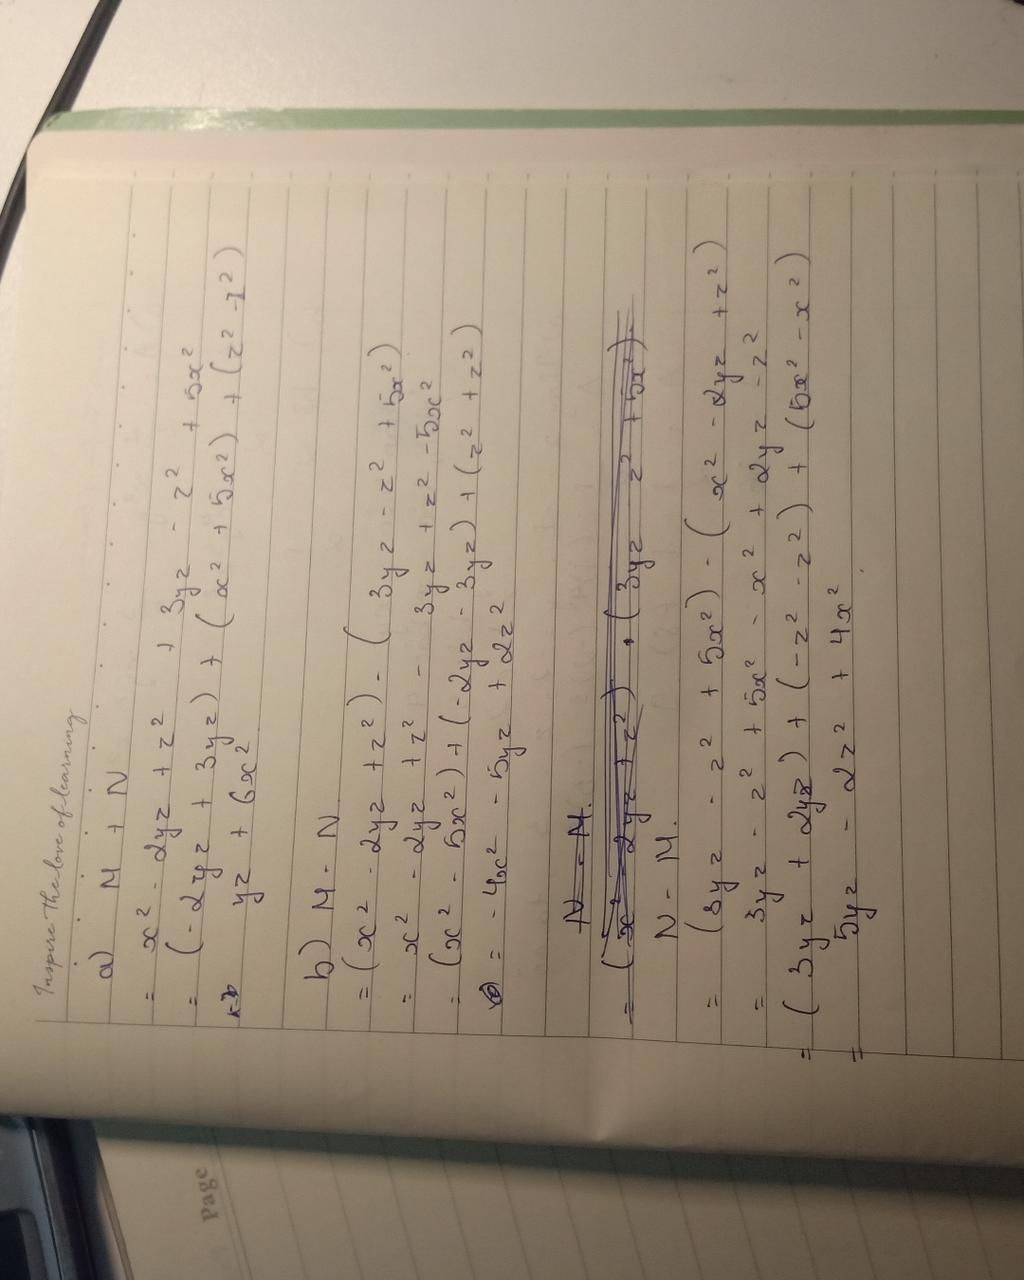 Inspire the love of learning
a) M + N
= x² - 2yz + z² + 3yz - z² + 5x²
= (-2yz + 3yz) + (x² + 5x²) + (z² - z²)
yz + 6x²
b) M - N
= (x² - 2yz + z²) - (3yz - z² + 5x²)
= x² - 2yz + z² - 3yz + z² - 5x²
= (x² - 5x²) + (-2yz - 3yz) + (z² + z²)
= -4x² - 5yz + 2z²
N - M.
= (x² - 2yz + z²) + (3yz z² + 5x²)
N - M.
= (3yz - z² + 5x²) - (x² - 2yz + z²)
= 3yz - z² + 5x² - x² + 2yz - z²
= (3yz + 2yz) + (-z² - z²) + (5x² - x²)
= 5yz - 2z² + 4x²
Page